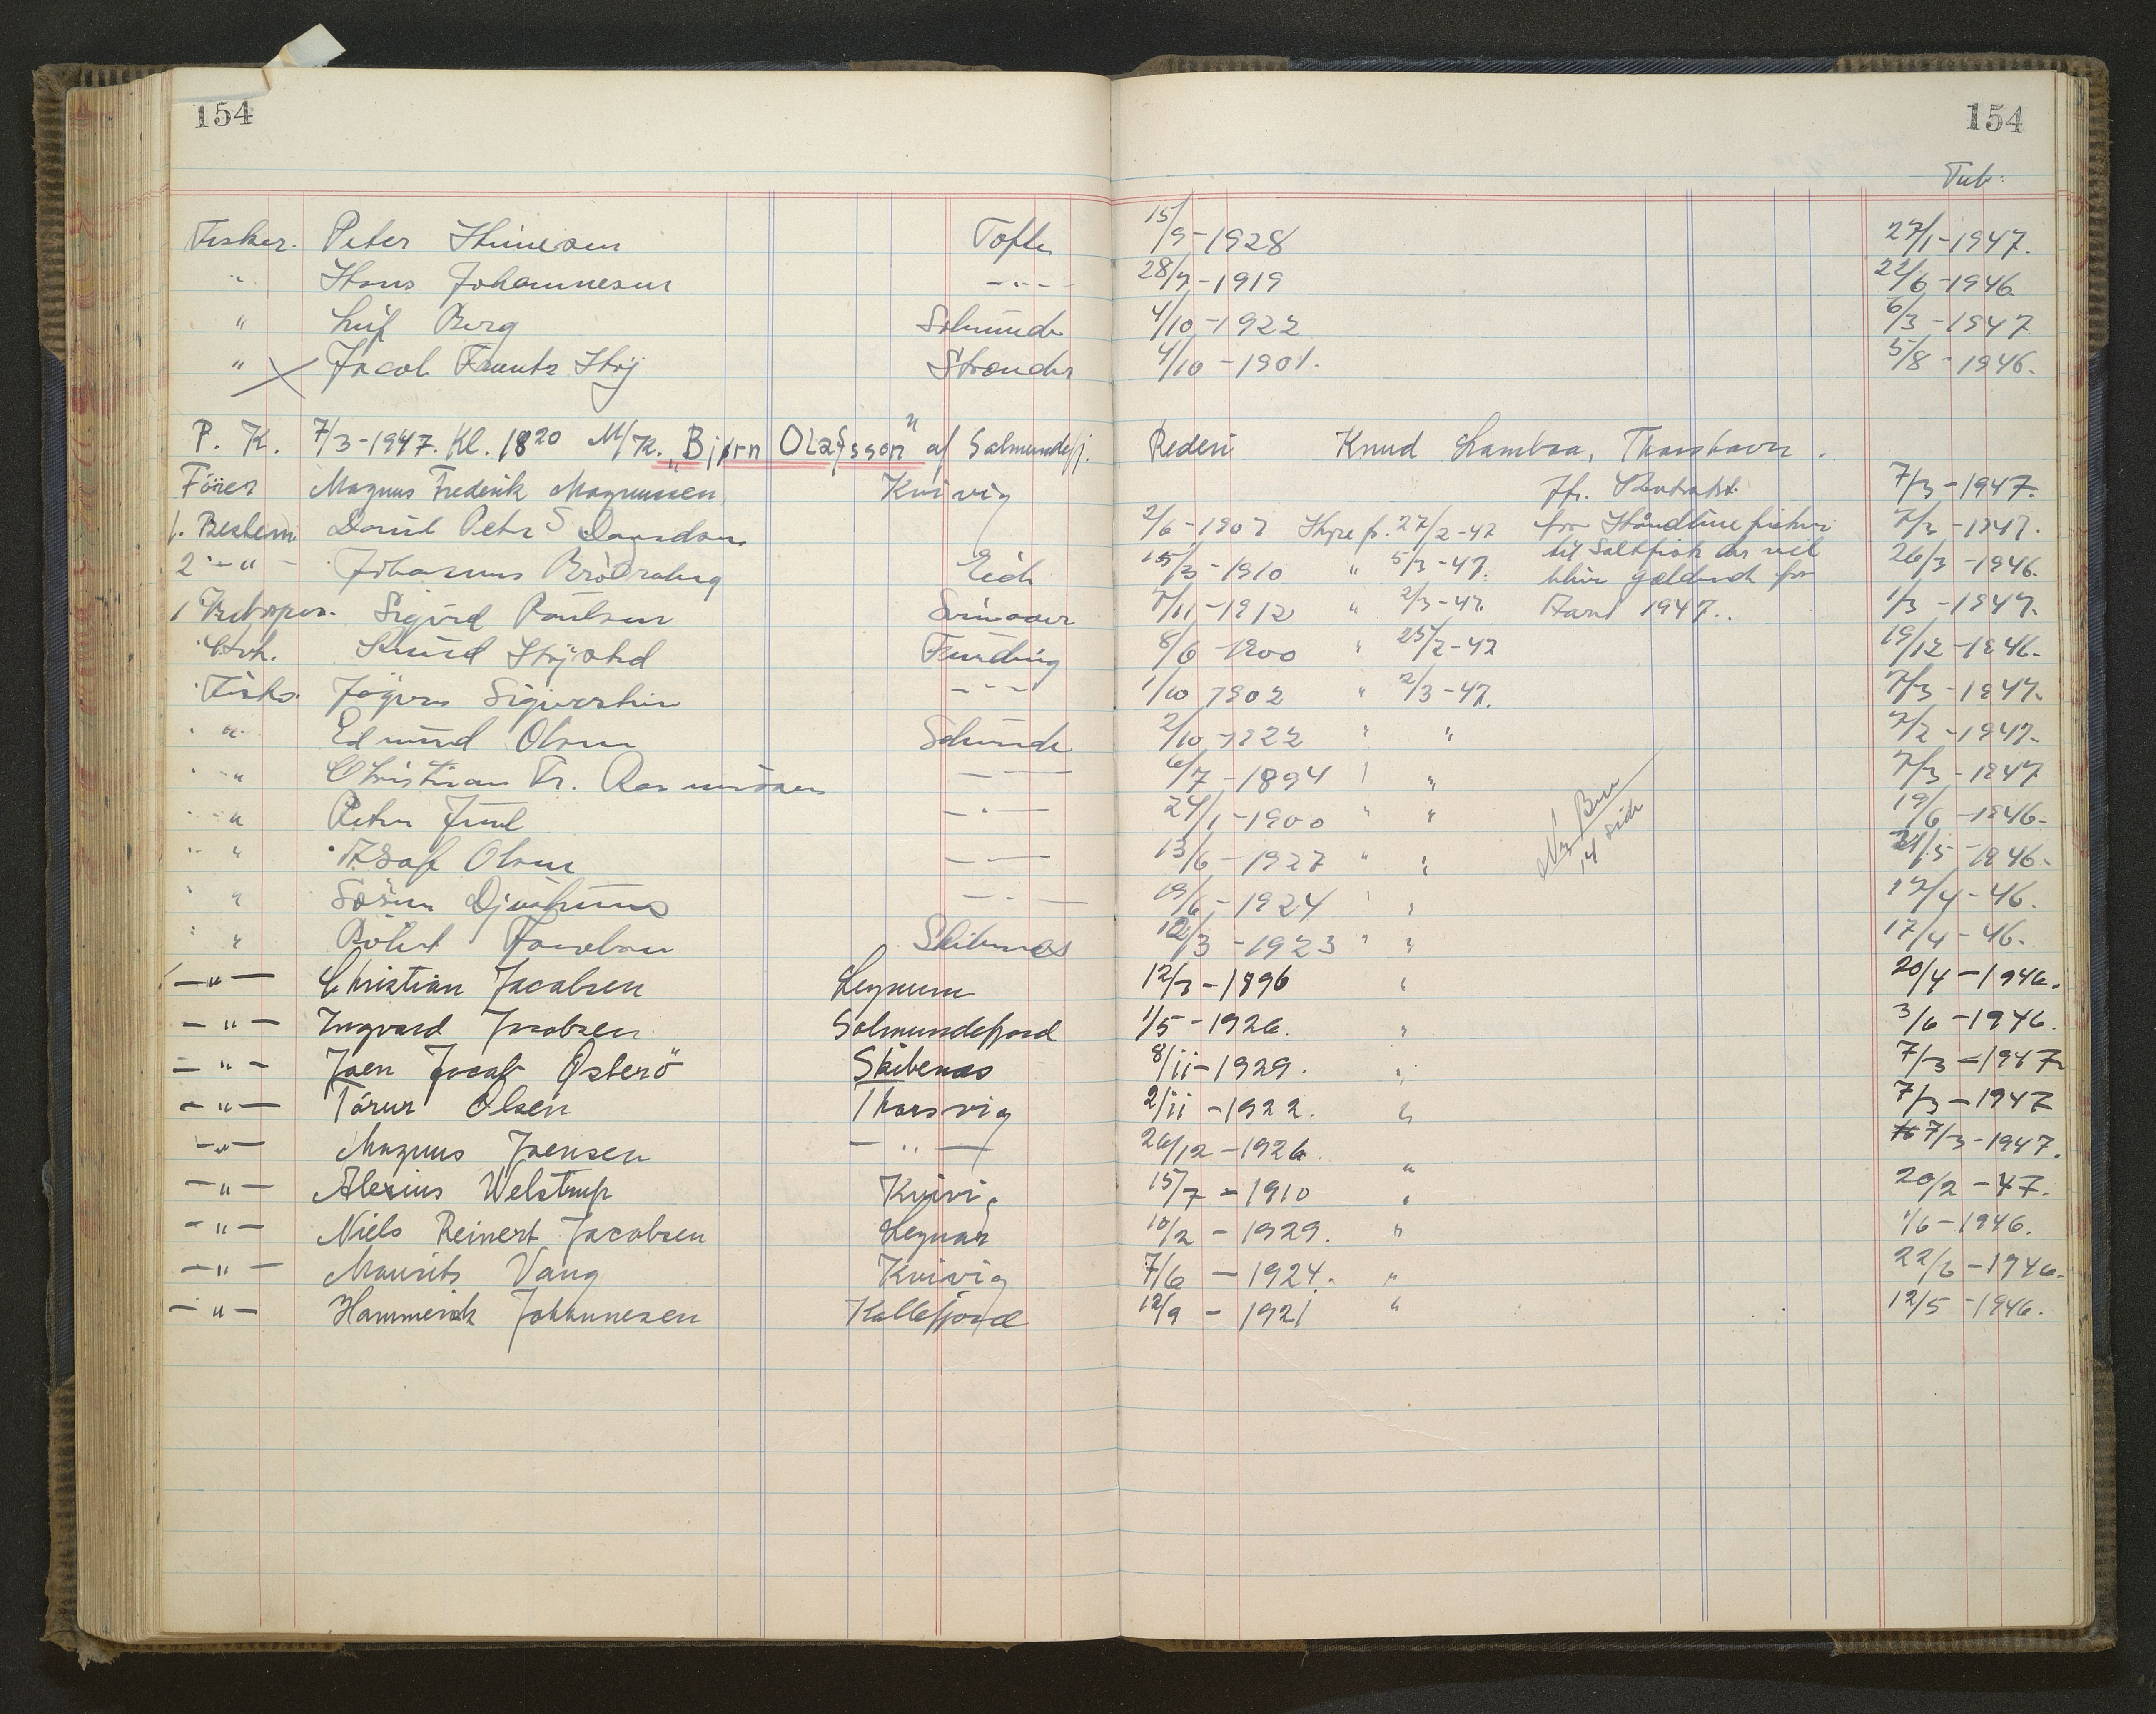 154 154
Tub.
Fisker. Peter Thinesen Tofte 15/9-1928 27/1-1947.
" Hans Johannesen -"- 28/7-1919 22/6-1946
" Leif Berg Solmunde 4/10-1922 6/3-1947
" Jacob Frants Høj Strender 4/10-1901. 5/8-1946.
P. K. 7/3-1947. Kl. 1820 M/K. "Bjørn Olafsson" af Salmundefj. Rederi Knud Lambaa, Thorshavn.
Förer Magnus Frederik Magnussen, Kvivig Jfr. Kontrakt 7/3-1947.
1. Bestem Daniel Petr S Davidsen 2/6-1907 Hyre fr. 27/2-47 for Haandlinefiskeri 7/3-1947.
2 -"- Johannes Eide 15/3-1910 " 5/3-47. til Saltfisk der vil 26/3-1946.
blive gældende for
1 Sigurd Poulsen 7/11-1912 " 2/3-47 Aaret 1947.. 1/3-1947.
Knud Højsted Funding 8/6-1900 " 25/2-47 19/12-1946-
Fisk. Jögvan Sigvertsen -"- 1/10 1902 " 2/3-47. 7/3-1947.
" Edmund Olsen Solmunde 2/10-1922 " " 7/2-1947-
" Christian Fr. Rasmussen -"- 6/7-1894 " " 7/3-1947
" Peter Juul -"- 24/1-1900 " " 19/6-1946-
14 side
" Asaf Olsen -"- 13/6-1927 " " 21/5-1946-
" Sörin Djurhuus -"- 19/6-1924 " " 17/4-46.
" Jacobsen Skibenæs 12/3-1923 " " 17/4-46.
-"- Christian Jacobsen Leynum 12/3-1896 " 20/4-1946.
-"- Ingvard Jacobsen Solmundefjord 1/5-1926. " 3/6-1946.
-"- Joen Jocaf Østerö Skibenæs 8/11-1929. " 7/3-1947
-"- Tórur Olsen Thorsvig 2/11-1922. " 7/3-1947
-"- Magnus Joensen -"- 26/12-1926. " 7/3-1947.
-"- Alexius Welstrup Kvivig 15/7-1910 " 20/2-47.
-"- Niels Reinert Jacobsen Leynar 10/2-1929. " 1/6-1946.
-"- Maurits Vang Kvivig 7/6-1924. " 22/6-1946.
-"- Hammerick Johannesen Kollefjord 12/9-1921 " 12/5-1946.